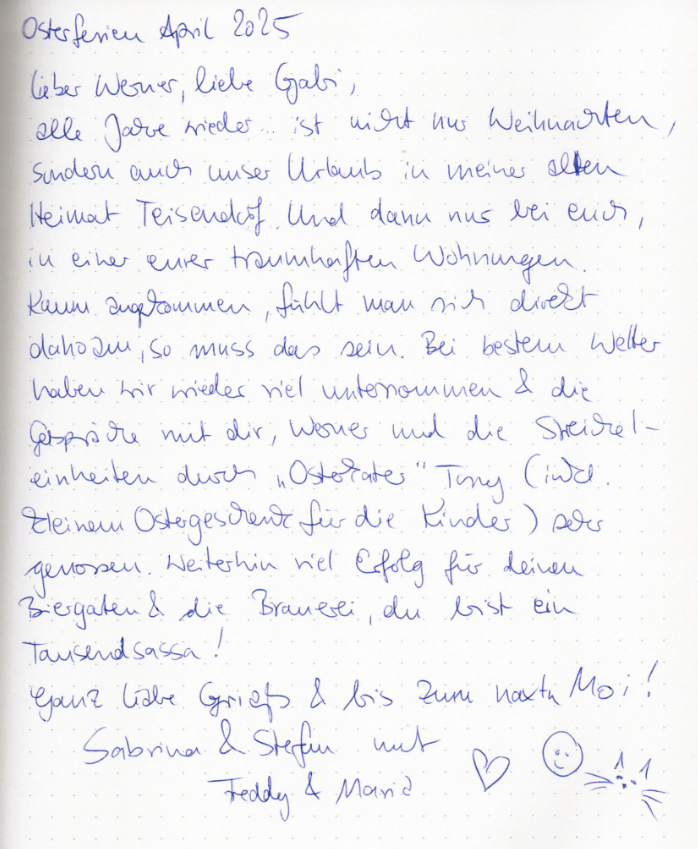 Osterferien April 2025
Lieber Werner, liebe Gabi,
alle Jahre wieder... ist nicht nur Weihnachten,
sondern auch unser Urlaub in meiner alten
Heimat Teisendorf. Und dann nur bei euch,
in einer eurer traumhaften Wohnungen.
Kaum angekommen, fühlt man sich direkt
dahoam, so muss das sein. Bei bestem Wetter
haben wir wieder viel unternommen & die
Gespräche mit dir, Werner und die Streichel-
einheiten durch „Osterkater" Tony (inkl.
kleinem Ostergeschenk für die Kinder) sehr
genossen. Weiterhin viel Erfolg für deinen
Biergaten & die Brauerei, du bist ein
Tausendsassa!
Ganz liebe Griaß & bis zum naxtn Moi!
Sabrina & Stefan mit
Freddy &